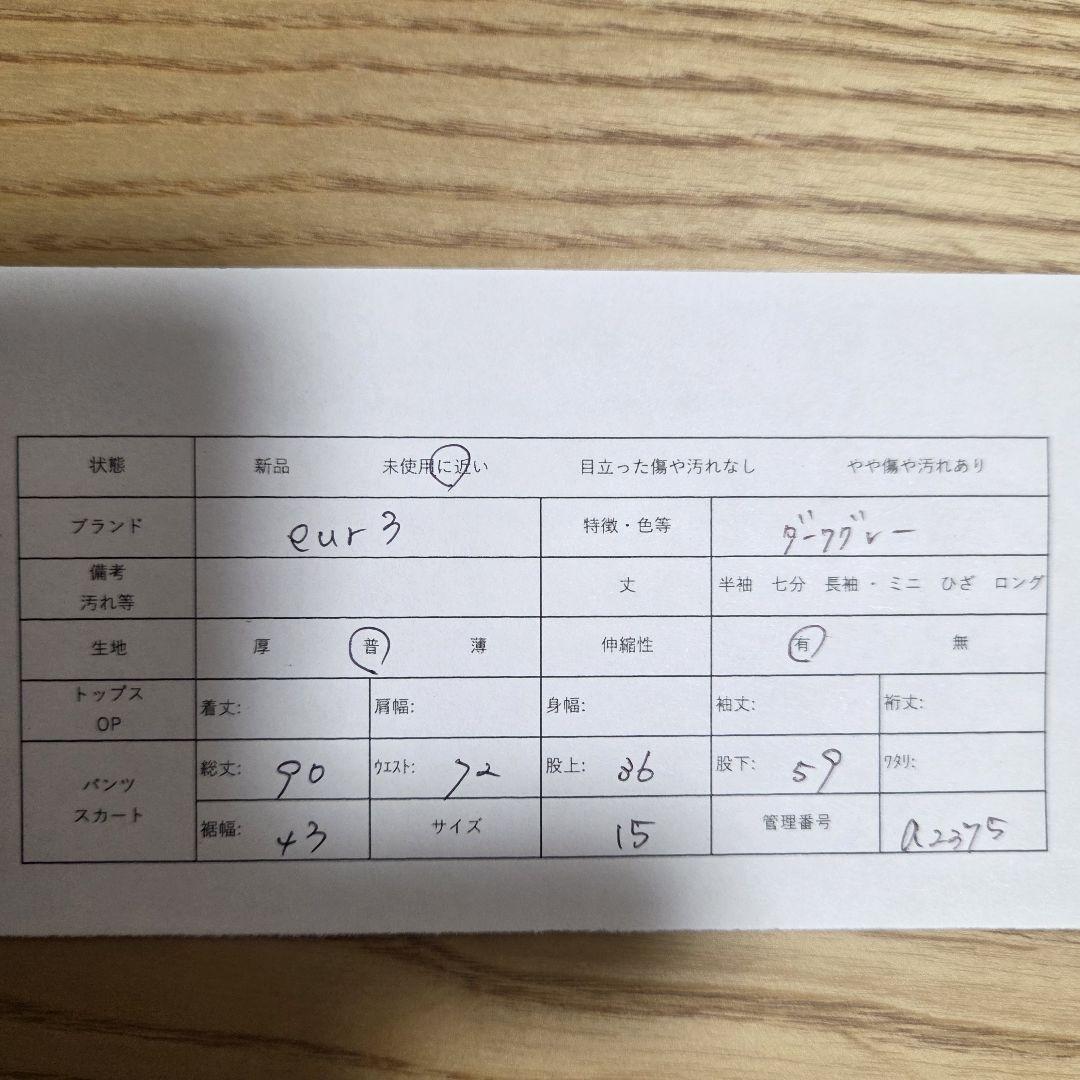 状態 新品 未使用に近い 目立った傷や汚れなし やや傷や汚れあり
ブランド eur3 特徴・色等 ダークグレー
備考
汚れ等 丈 半袖 七分 長袖・ミニ ひざ ロング
生地 厚 普 薄 伸縮性 有 無
トップス
OP 着丈: 肩幅: 身幅: 袖丈: 裄丈:
パンツ
スカート
総丈: 90 ウエスト: 72 股上: 36 股下: 59 ワタリ:
裾幅: 43 サイズ 15 管理番号 a2375